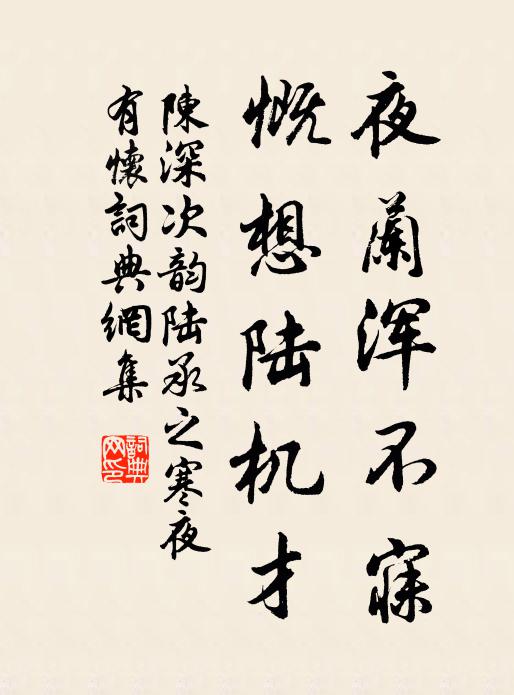 夜蘭浑不寐
慨想陆机才
陳深次韵陆承之寒夜
有懷詞典網集
詞典
网印